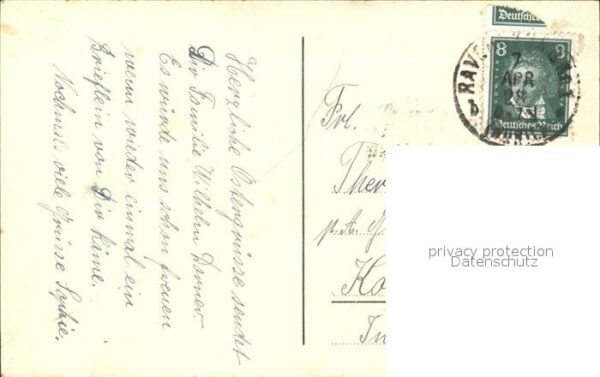 Herzliche Ostergrüsse sendet
Dir Familie Wilhelm Dorner
Es würde uns schon freuen
wenn wieder einmal ein
Brieflein von Dir käme.
Nochmal viele Grüsse Sophie.
Deutsches
8 8
Deutsches Reich
RAV
7
APR
28
Frl.
Ther
p. A. G
Ko
privacy protection
Datenschutz